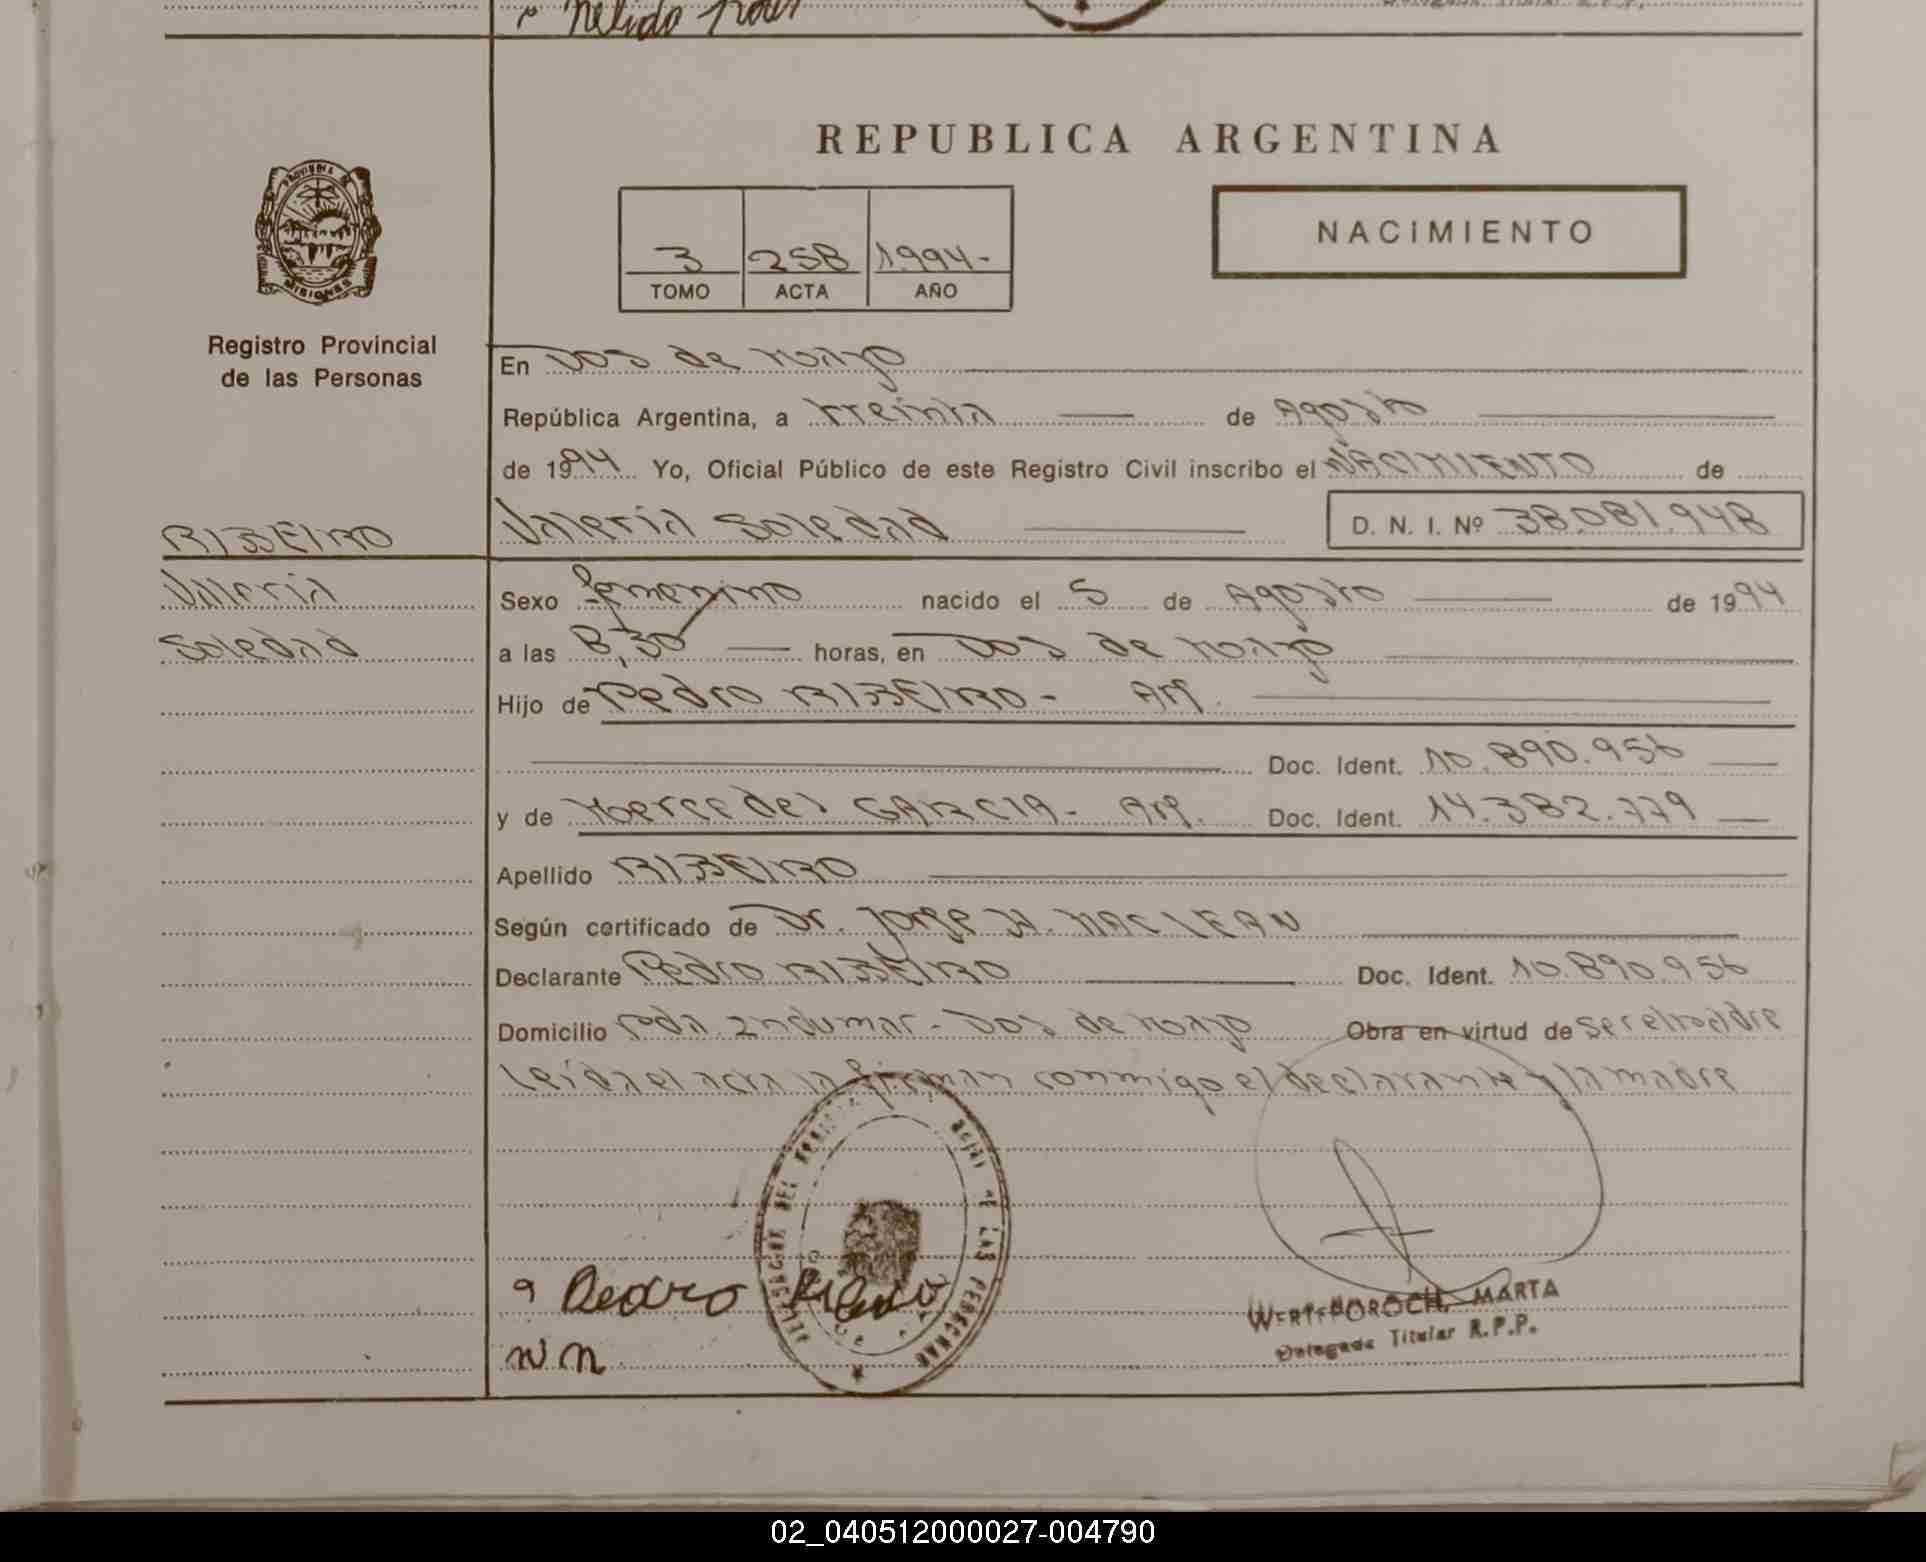 Nelida
REPUBLICA ARGENTINA
PROVINCIA DE
MISIONES
3 258 1994-
TOMO ACTA AÑO
NACIMIENTO
Registro Provincial
de las Personas
En Dos de Mayo
República Argentina, a treinta de Agosto
de 1994 Yo, Oficial Público de este Registro Civil inscribo el NACIMIENTO de
RIBEIRO
Valeria Soledad D. N. I. Nº 38.081.948
Valeria
Soledad
Sexo femenino nacido el 5 de Agosto de 1994
a las 8,30 horas, en Dos de Mayo
Hijo de Pedro RIBEIRO- Ar.
Doc. Ident. 10.890.956
y de Mercedes GARCIA- Ar. Doc. Ident. 14.382.779
Apellido RIBEIRO
Según certificado de Dr. Jorge H. MACLEAN
Declarante Pedro RIBEIRO Doc. Ident. 10.890.956
Domicilio Pdor Dos de Mayo Obra en virtud de ser el padre
Leída el acta la firman conmigo el declarante y la madre
DELEGACION DEL REGISTRO DE LAS PERSONAS
Pedro Ribeiro
MARTA
Delegada Titular R.P.P.
02_040512000027-004790